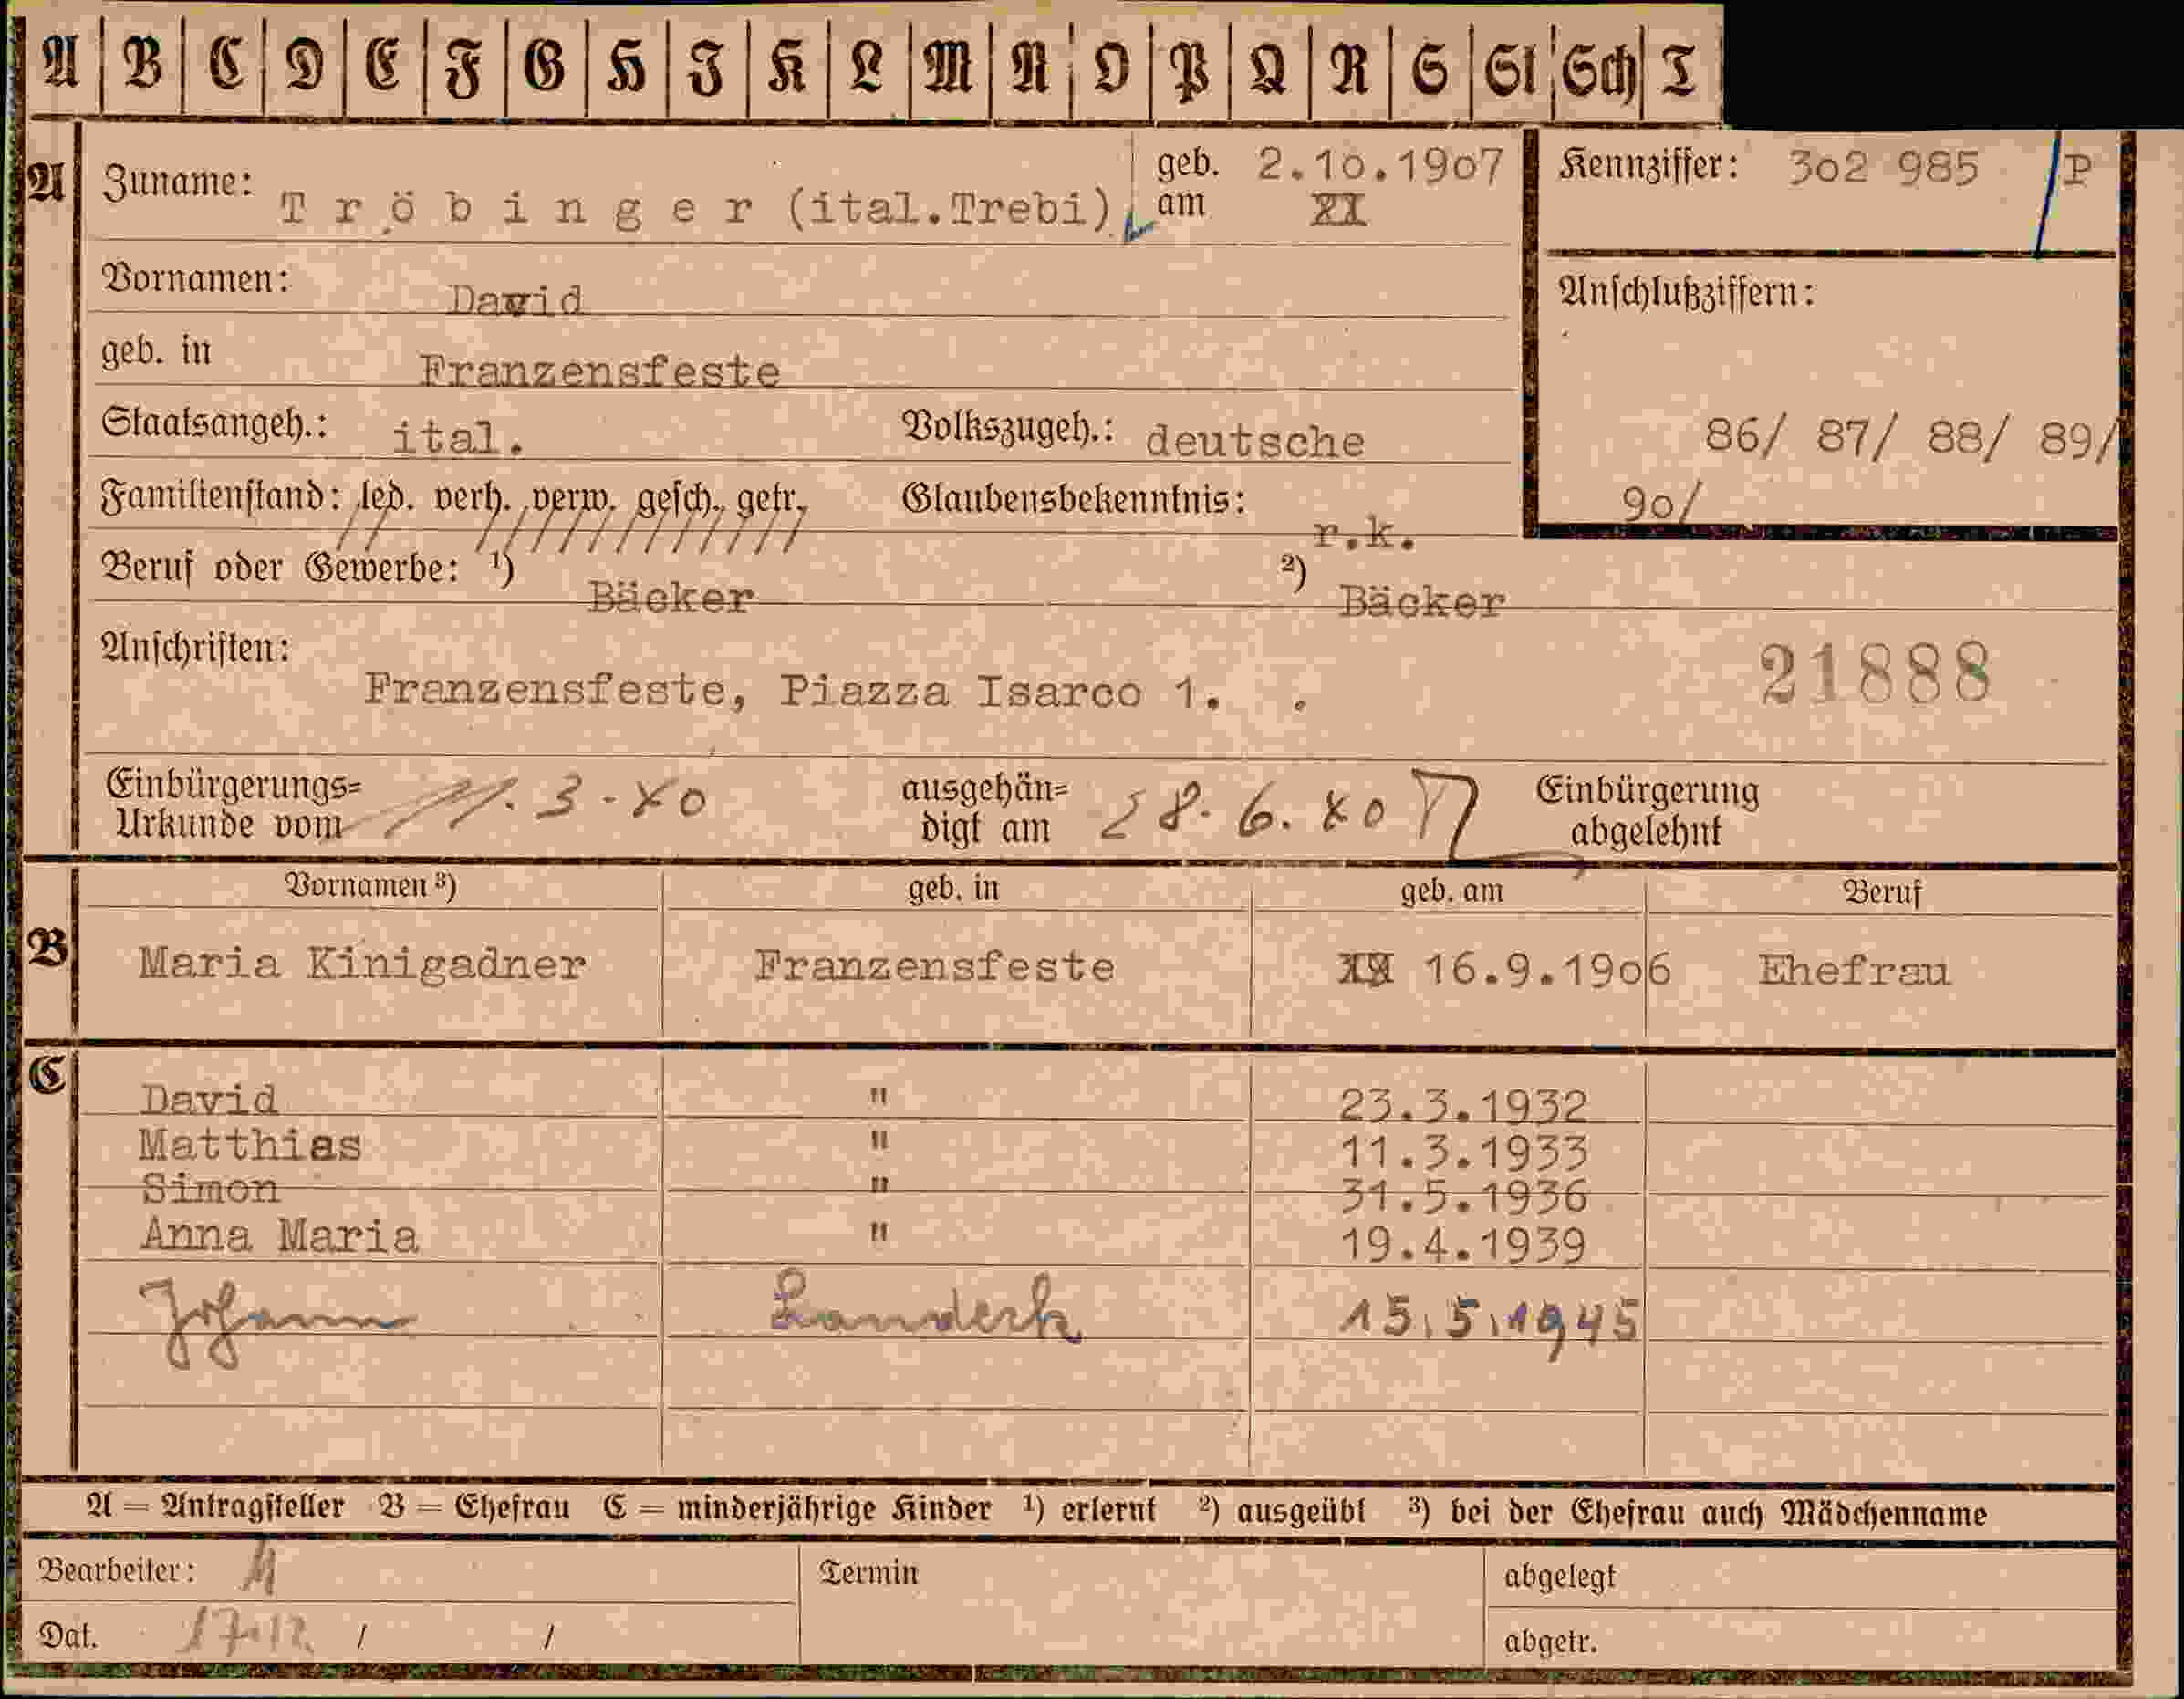 A B C D E F G H I K L M N O P Q R S St Sch T
A Zuname: Tröbinger (ital.Trebi) geb. am 2.10.1907 Kennziffer: 302 985 /P
Vornamen: David
Anschlußziffern:
geb. in Franzensfeste
Staatsangeh.: ital. Volkszugeh.: deutsche 86/ 87/ 88/ 89/
Familienstand: led. verh. verw. gesch. getr. Glaubensbekenntnis: r.k. 90/
Beruf oder Gewerbe: ¹) Bäcker ²) Bäcker
Anschriften: Franzensfeste, Piazza Isarco 1. 21888
Einbürgerungs=Urkunde vom .3.40 ausgehän=digt am 28.6.40 Einbürgerung abgelehnt
Vornamen ³) geb. in geb. am Beruf
B Maria Kinigadner Franzensfeste 16.9.1906 Ehefrau
C
David " 23.3.1932
Matthias " 11.3.1933
Simon " 31.5.1936
Anna Maria " 19.4.1939
Johann Landeck 15.5.1945
A = Antragsteller B = Ehefrau C = minderjährige Kinder ¹) erlernt ²) ausgeübt ³) bei der Ehefrau auch Mädchenname
Bearbeiter: Termin abgelegt
Dat. 17.12. / / abgetr.